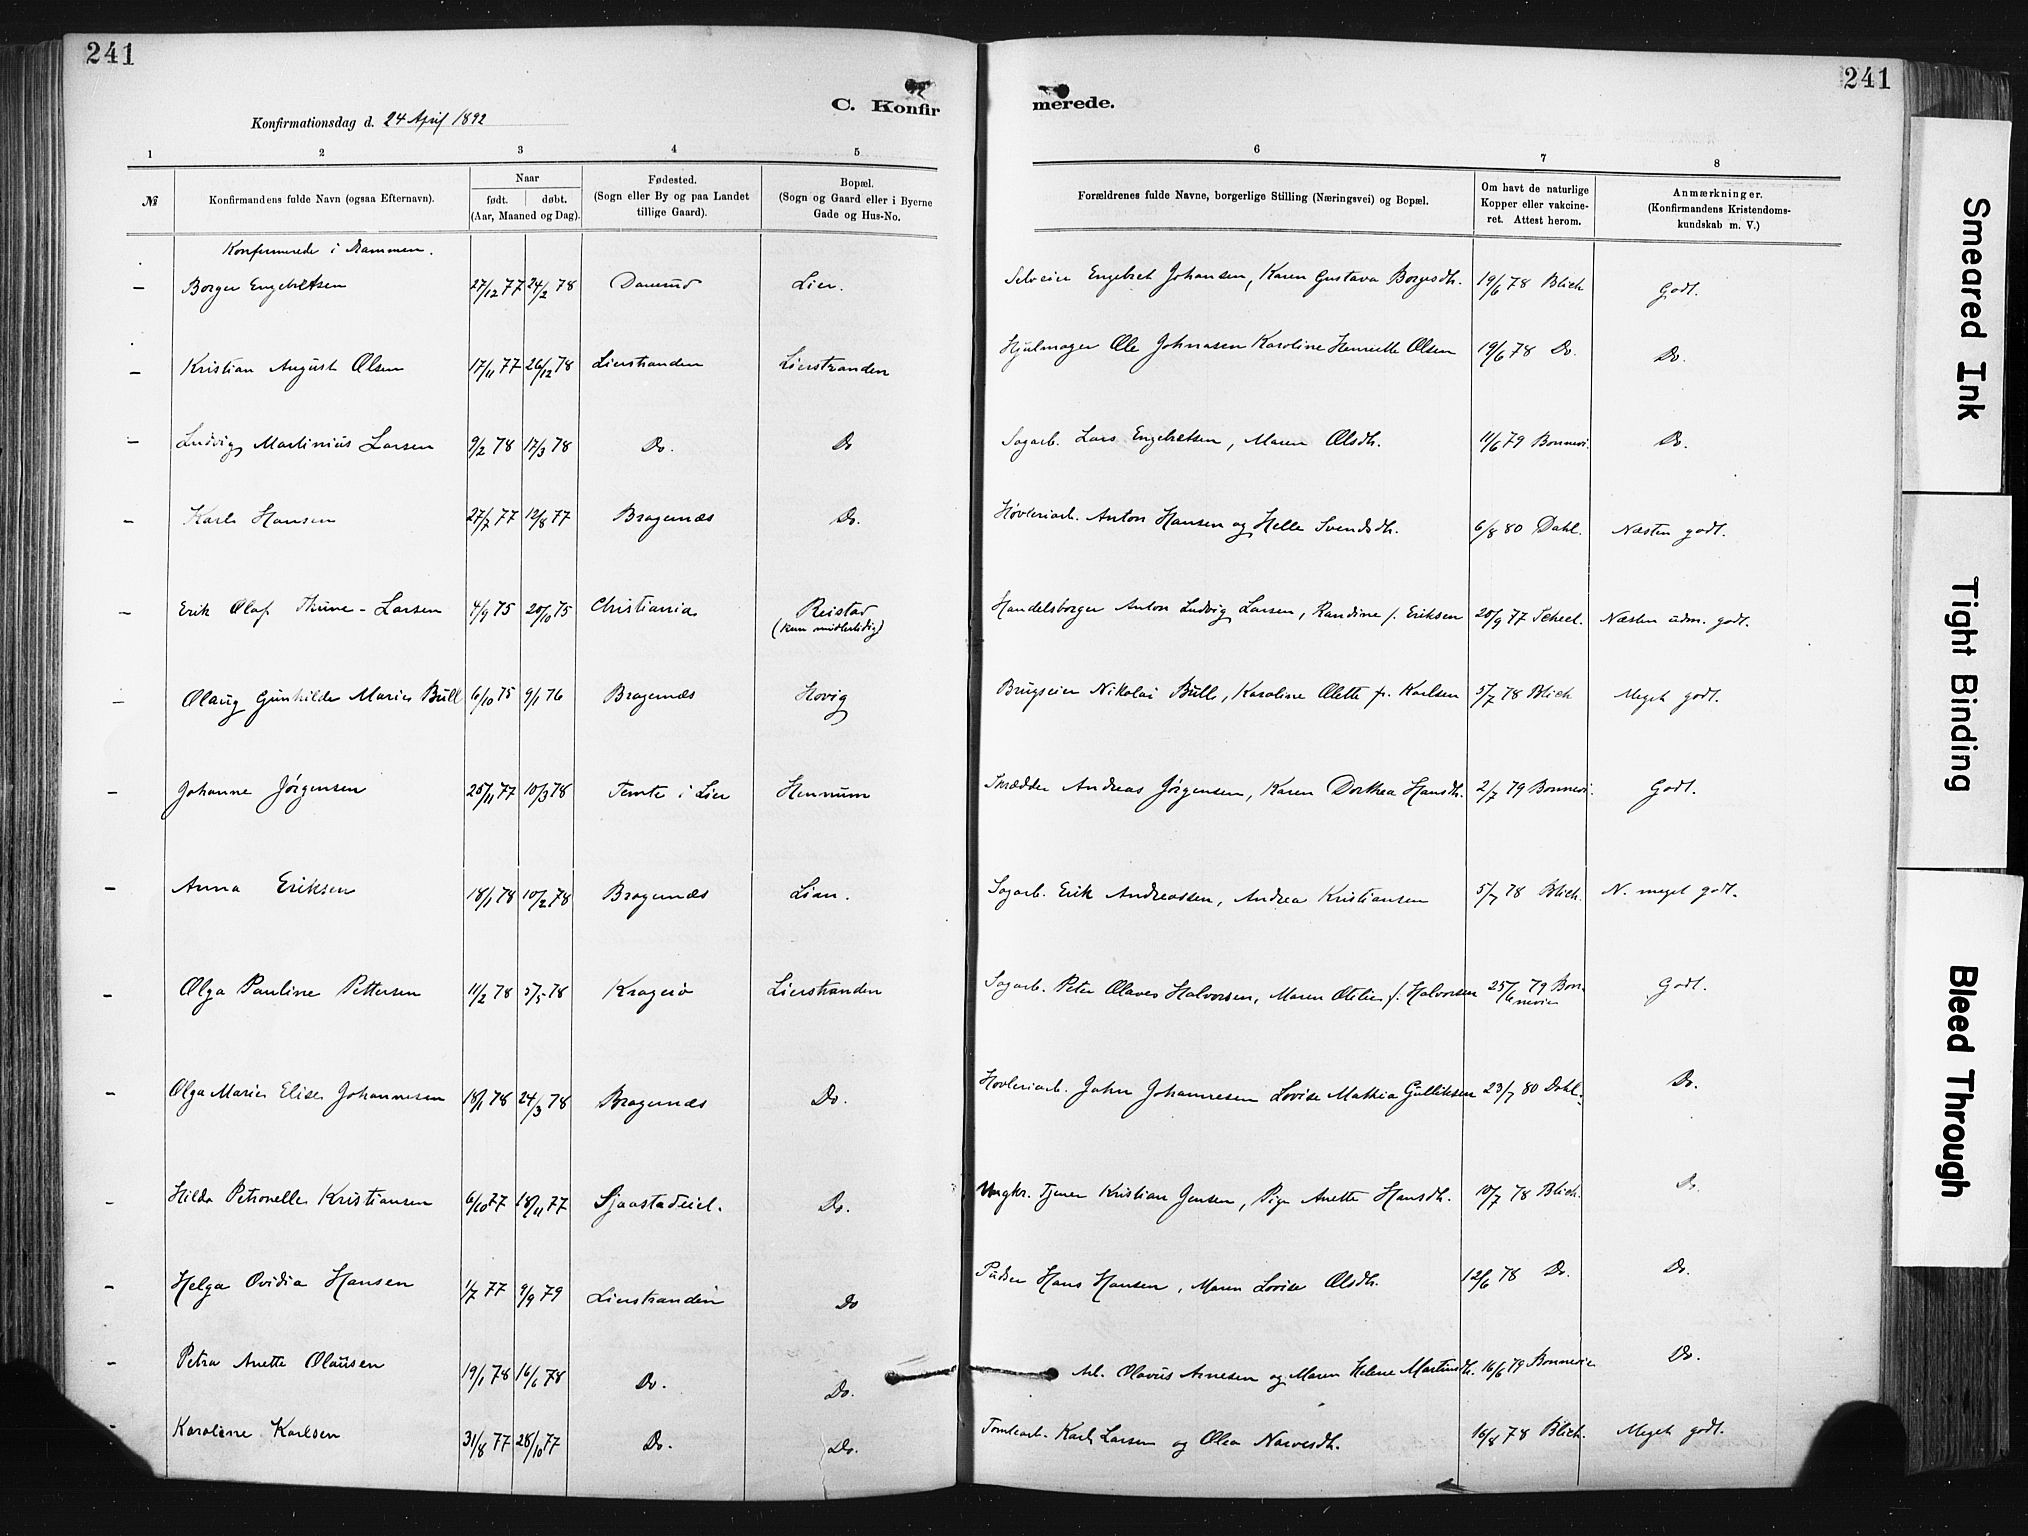 241
241
C. Konfir
merede.
Konfirmationsdag d. 24 April 1892
1 2 3 4 5 6 7 8
№ Konfirmandens fulde Navn (ogsaa Efternavn).
Naar
født. døbt.
(Aar, Maaned og Dag).
Fødested.
(Sogn eller By og paa Landet
tillige Gaard).
Bopæl.
(Sogn og Gaard eller i Byerne
Gade og Hus-No.
Forældrenes fulde Navne, borgerlige Stilling (Næringsvei) og Bopæl.
Om havt de naturlige
Kopper eller vakcine-
ret. Attest herom.
Anmærkninger.
(Konfirmandens Kristendoms-
kundskab m. V.)
Konfirmerede i Drammen.
– Borger Engebretsen 27/12 77 24/2 78 Lier. Selveier Engebret Johansen, Karen Gustava Borgesdh. 19/6 78 Blich Godt.
– Kristian August Olsen 17/11 77 26/12 78 Lierstranden Lierstranden Hjulmager Ole Johnasen Karoline Henriette Olsen 19/6 78 Do. Do.
– Ludvig Martinius Larsen 9/2 78 17/3 78 Do. Do Sagarb. Lars Engebretsen, Maren Olsdh. 11/6 79 Bonnevi. Do.
– Karl Hansen 27/7 77 12/8 77 Bragernæs Do. Høvleriarb. Anton Hansen og Helle Svendsdh. 6/8 80 Dahl. Næsten godt.
– Erik Olaf Thune-Larsen 4/9 75 20/10 75 Christiania Reistad
(kun midlertidig)
Handelsborger Anton Ludvig Larsen, Randine f. Eriksen 20/9 77 Scheel. Næsten udm. godt.
– Olaug Gunhilde Marie Bull 6/10 75 9/1 76 Bragernæs Hovig Brugseier Nikolai Bull, Karoline Olette f. Karlsen 5/7 78 Blich Meget godt.
– Johanne Jørgensen 25/11 77 10/3 78 Temte i Lier Hennum Skrædder Andreas Jørgensen, Karen Dorthea Hansdh. 2/7 79 Bonnevi. Godt.
– Anna Eriksen 18/1 78 10/2 78 Bragernæs Lian. Sagarb. Erik Andreassen, Andrea Kristiansen 5/7 78 Blich. N. meget godt.
– Olga Pauline Pettersen 11/2 78 5/5 78 Kragerø Lierstranden Sagarb. Peter Olaves Halvorsen, Maren Otilie f. Halvorsen 25/6 79 Bon-
nevie
Godt.
– Olga Marie Elise Johannesen 18/1 78 24/3 78 Bragernæs Do. Høvleriarb. John Johannesen Lovise Mathea Gulliksen 23/7 80 Dahl. Do.
– Hilda Petronelle Kristiansen 6/10 77 18/11 77 Do. Ungkr. Tjener Kristian Jensen, Pige Anette Hansdh. 10/7 78 Blich. Do.
– Helga Ovidia Hansen 1/7 77 9/9 79 Lierstranden Do Pudser Hans Hansen, Maren Lovise Olsdh. 12/6 78 Do. Do.
– Petra Anette Olausen 19/1 78 16/6 78 Do. Do. Arb. Olavus Arnesen og Maren Helene Martinsdh. 16/6 79 Bonnevie Do.
– Karoline Karlsen 31/8 77 28/10 77 Do. Do. Tomtearb. Karl Larsen og Olea Narvesdh. 16/8 78 Blich. Meget godt.
Smeared Ink
Tight Binding
Bleed Through